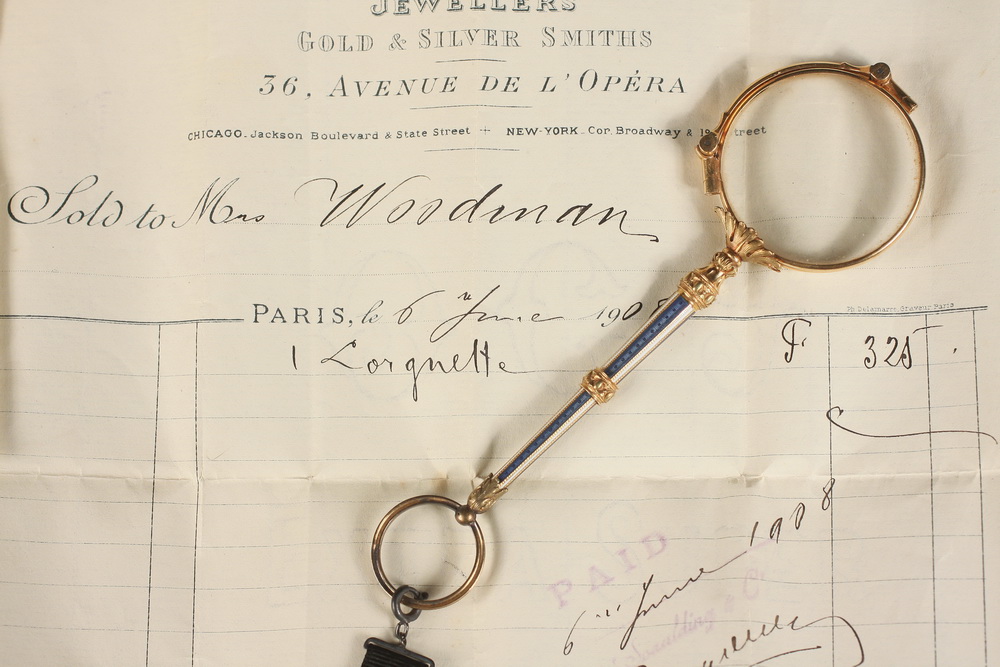 JEWELLERS
GOLD & SILVER SMITHS
36, AVENUE DE L'OPÉRA
CHICAGO. Jackson Boulevard & State Street + NEW-YORK. Cor. Broadway & 19 treet
Sold to Mrs Woodman
Ph. Delamarre Graveur Paris
PARIS, le 6 June 1908
1 Lorgnette F. 325
PAID
6 June 1908
Spaulding & Co